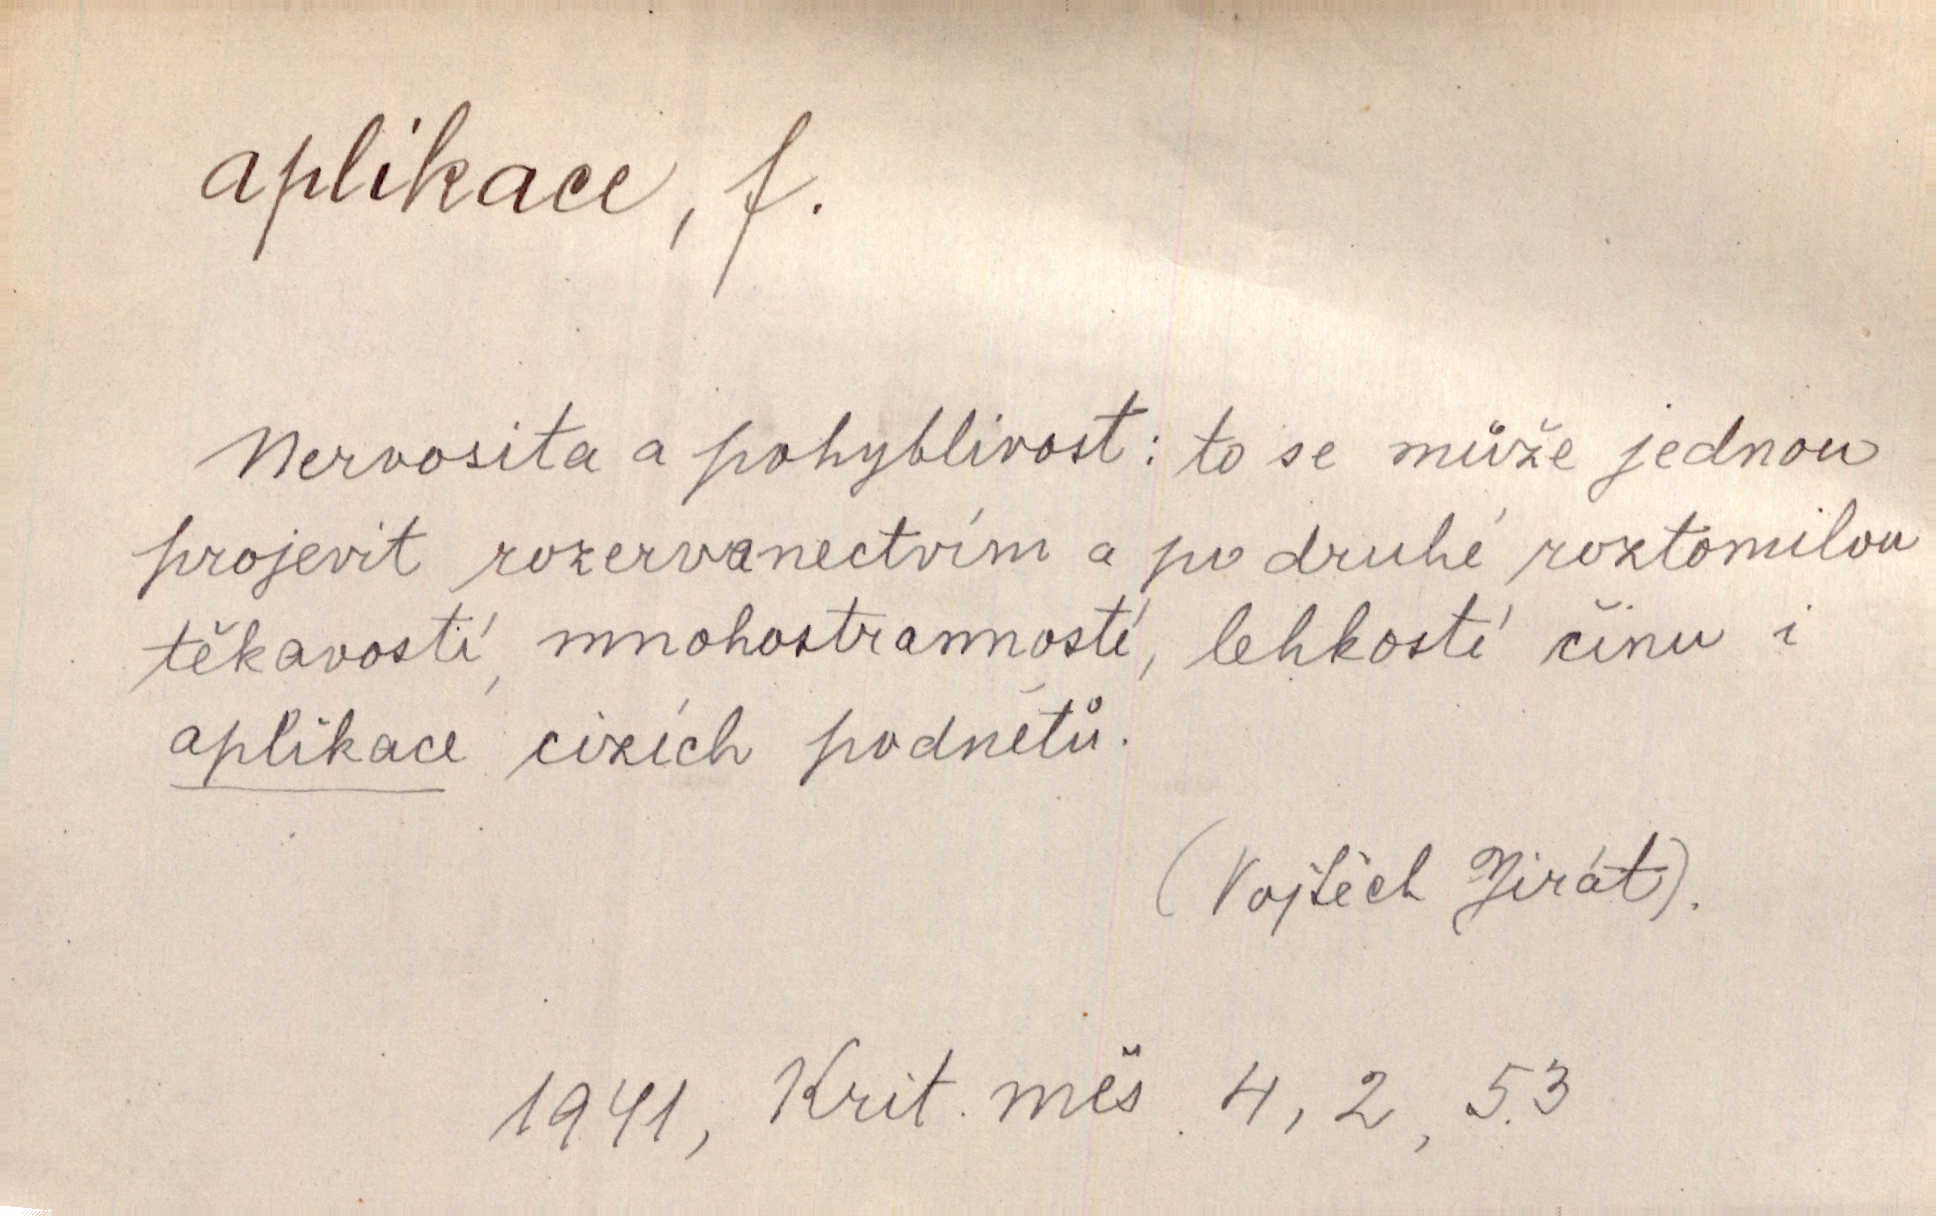 aplikace, f.
Nervosita a pohyblivost: to se může jednou
projevit rozervanectvím a po druhé roztomilou
těkavostí, mnohostranností, lehkostí činu i
aplikace cizích podnětů.
(Vojtěch Jirát).
1941, Krit. měs. 4, 2, 53